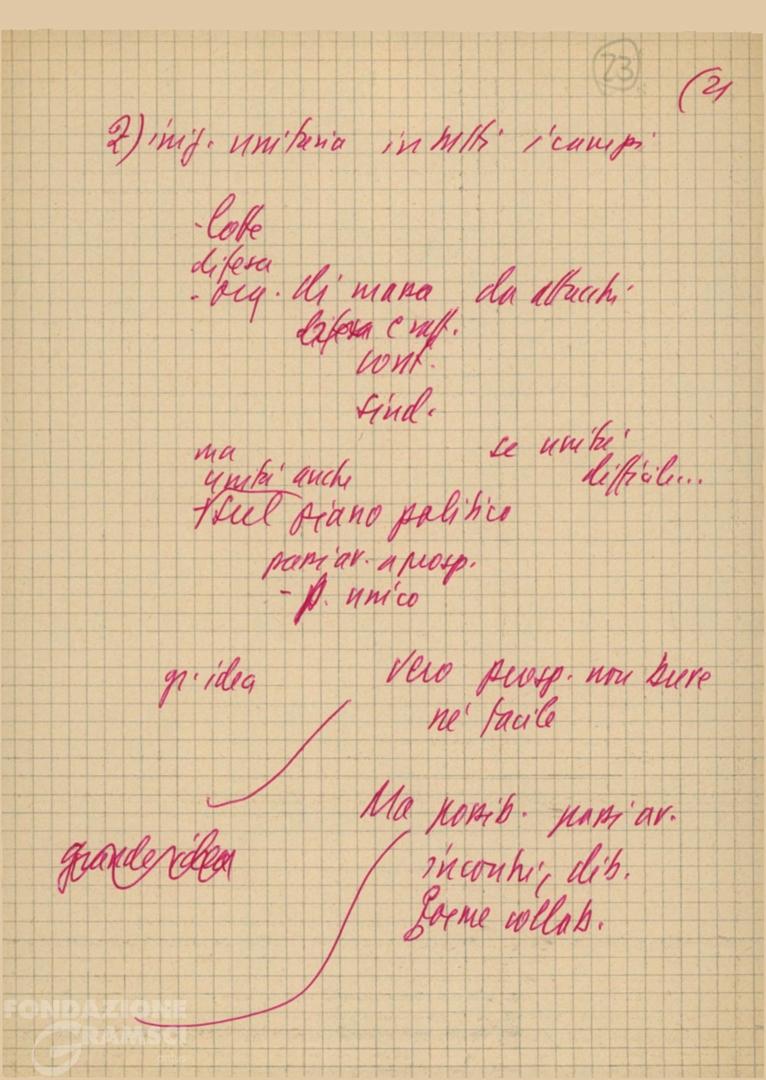 23
(2
2) iniz. unitaria in tutti i campi
- lotte
difesa
- org. di massa da attacchi
difesa e raff.
conf.
sind.
ma
unità anche
se unità
difficile...
sul piano politico
passi av. a prosp.
- p. unico
gr. idea
Vero prosp. non breve
né facile
Ma possib. passi av.
grande idea
incontri, dib.
forme collab.
FONDAZIONE
GRAMSCI